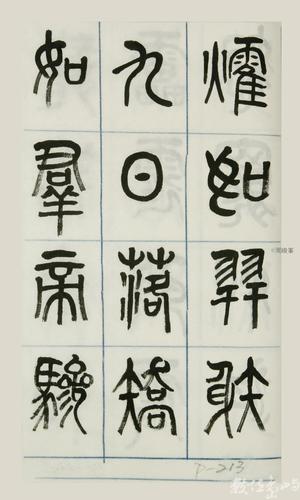 㸌如羿射
九日落矯
如群帝驂
P-213